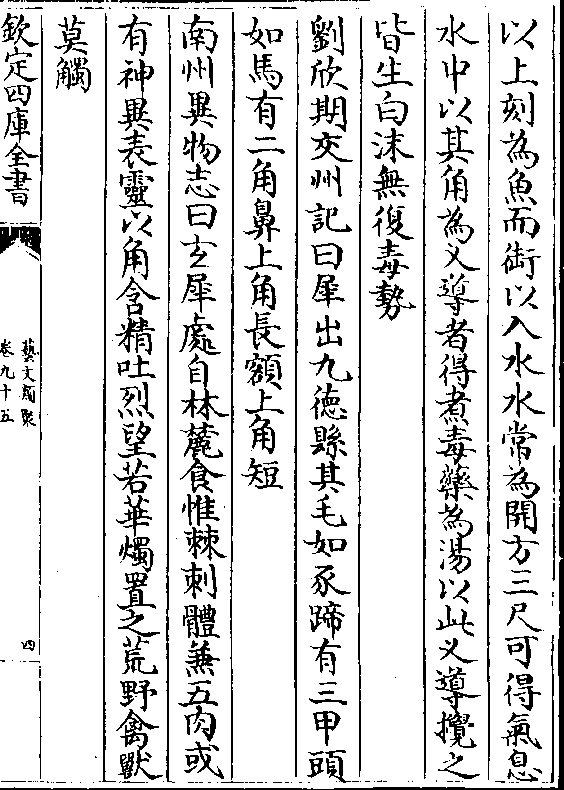 以上刻為魚而銜以入水水常為開方三尺可得氣息
水中以其角為乂導者得煮毒藥為湯以此乂導攪之
皆生白沫無復毒勢
劉欣期交州記曰犀出九德縣其毛如豕蹄有三甲頭
如馬有二角鼻上角長額上角短
南州異物志曰玄犀處自林麓食惟棘刺體兼五肉或
有神異表靈以角含精吐烈望若華燭置之荒野禽獸
莫觸
欽定四庫全書
藝文類聚
卷九十五
四